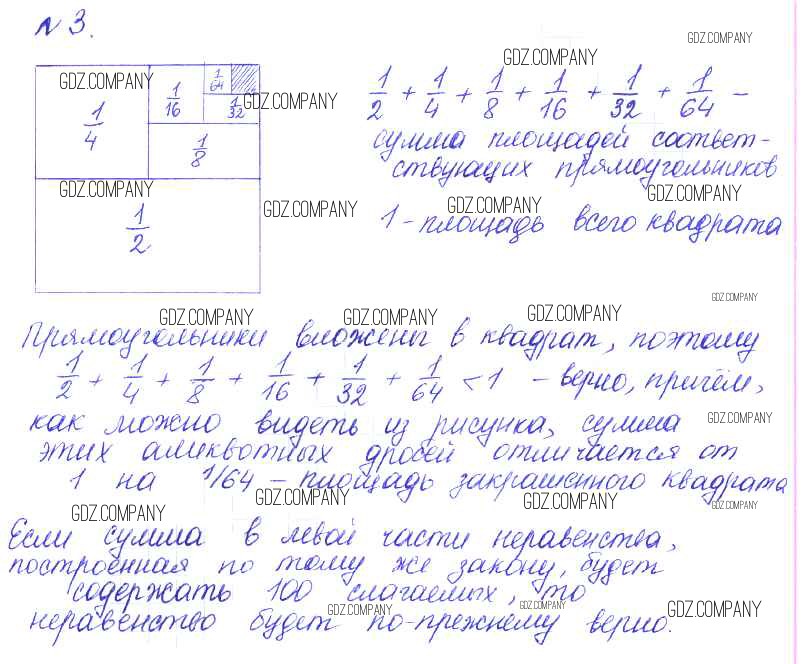 №3.
GDZ.COMPANY
GDZ.COMPANY
GDZ.COMPANY
1/4
1/16
1/64
1/32
GDZ.COMPANY
1/8
1/2 + 1/4 + 1/8 + 1/16 + 1/32 + 1/64 –
сумма площадей соответ-
ствующих прямоугольников
GDZ.COMPANY
GDZ.COMPANY
GDZ.COMPANY
GDZ.COMPANY
1/2
1 - площадь всего квадрата
GDZ.COMPANY
GDZ.COMPANY
GDZ.COMPANY
GDZ.COMPANY
Прямоугольники вложены в квадрат, поэтому
1/2 + 1/4 + 1/8 + 1/16 + 1/32 + 1/64 < 1 – верно, причём,
как можно видеть из рисунка, сумма
GDZ.COMPANY
этих аликвотных дробей отличается от
1 на 1/64 – площадь закрашенного квадрата
GDZ.COMPANY
GDZ.COMPANY
GDZ.COMPANY
GDZ.COMPANY
Если сумма в левой части неравенства,
построенная по тому же закону, будет
содержать 100 слагаемых, то
GDZ.COMPANY
GDZ.COMPANY
GDZ.COMPANY
неравенство будет по-прежнему верно.